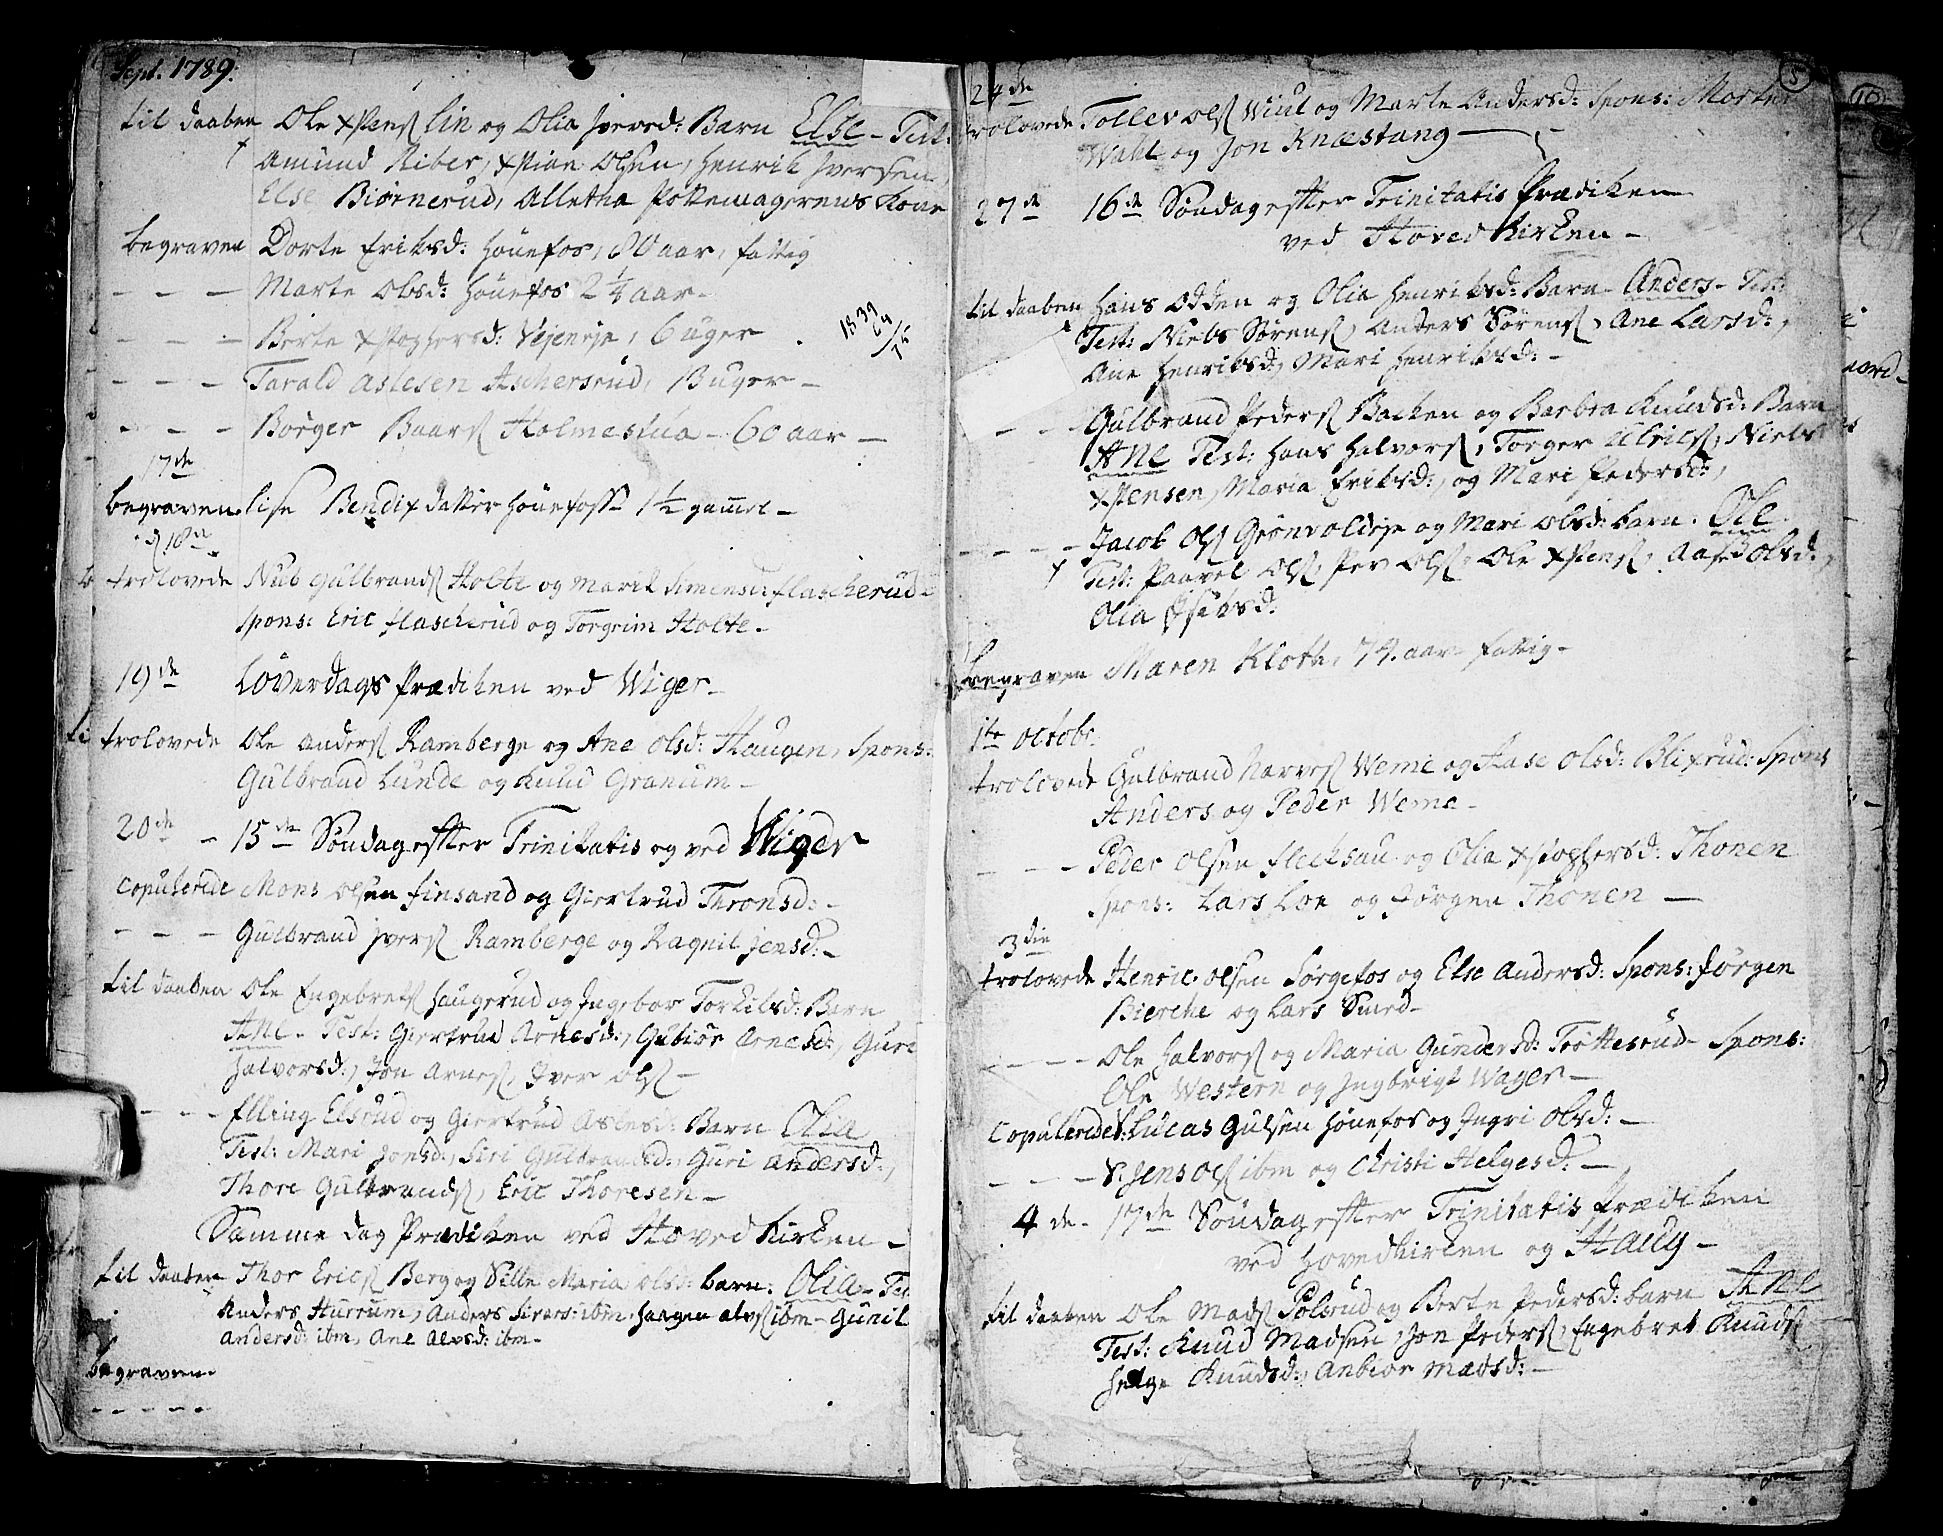 Sept. 1789.
til daaben Ole Xstens. Lin og Olia Iversd: Barn Else - Test:
Amund Riber, Xstian Olsen, Henrik Iversen,
Else Biørnerud, Alletha Pottemagerens Kone
begraven Dorte Eriksd: Hönefos, 80 aar, fattig
- - - Marte Olsd: Hönefos 2 1/4 aar -
- - - Berte Xstophersd: Vejeneje, 6 uger
1839
- - - Tarald Aslesen Aschersrud, 13 uger -
- - - Börger Baars. Holmestua - 60 aar -
17de
begraven lise Bendix datter Hönefoss - 1 1/2 gammel -
d 18de
trolovede Nub Gulbrands. Holte og Marit Simensd: Flascherud -
Spons: Eric Flascherud og Torgrim Holte -
19de Löverdags Prædiken ved Wiger -
trolovede Ole Anders. Ramberge og Ane Olsd: Haugen, Spons:
Gulbrand Lunde og Knud Granum -
20de - 15de Söndag efter Trinitatis og ved Wiger
Copulerede Mons Olsen Finsand og Giertrud Thronsd: -
- - - Gulbrand Ivers. Ramberge og Ragnil Jensd: -
til daaben Ole Engebrets. Haugerud og Ingebor Torkilsd: Barn
Ane - Test: Giertrud Arnesd:, Gubiör Arnesd:, Guri
Halvorsd:, Jon Arnes., Iver Ols. -
- - - Elling Elsrud og Giertrud Aslesd: Barn Olia
Test: Mari Jonsd:, Siri Gulbrandsd:, Guri Andersd:,
Thore Gulbrands., Eric Thoresen -
Samme dag Prædiken ved Hovedkirken -
til daaben Thor Erics. Berg og Sille Maria Olsd: barn: Olia - Tes
Anders Hurrum, Anders Sivers: ibm, Haagen Alvs. ibm - Gunil
Andersd: ibm, Ane Alvsd: ibm -
begraven
- - - - -
5
24de
trolovede Tollev Ols. Wiul og Marte Andersd: Spons: Morten
Wahl og Jon Knæstang -
27de 16de Söndag efter Trinitatis Prædiken
ved Hovedkirken -
til daaben Hans Odden og Olia Henriksd: Barn - Anders - Test:
Test: Niels Sörens., Anders Sörens., Ane Larsd:,
Ane Henriksd:, Mari Henriksd: -
- - - Gulbrand Peders. Backen og Barbra Knudsd: Barn
Ane Test: Hans Halvors., Torger Ulrics., Niels
Xstensen, Maria Eriksd:, og Mari Pedersd:,
- - - - Jacob Ols. Grönvoldeje og Mari Olsd: barn. Ole
Test: Paavel Ols., Per Ols., Ole Xstens., Aase Olsd:,
Olia
begraven Maren Kloth, 74 aar - fattig -
1te octobr.
trolovede Gulbrand Narves. Weme og Aase Olsd: Blixrud: Spons
Anders og Peder Weme -
- - - Peder Olsen Flecksau og Olia Xstophersd: Thonen
Spons: Lars Loe og Jörgen Thonen -
3die
trolovede Henric Olsen Sörgefos og Else Andersd: Spons: Jörgen
Bierche og Lars Smed -
- - - - Ole Halvors. og Maria Gundersd: Trötterud - Spons:
Ole Western og Ingbrigt Wager -
Copulerede S: Lucas Gulsen Hönefos og Ingri Olsd: -
- - - - S: Jens Ols. ibm og Christi Helgesd: -
4de - 17de Söndag efter Trinitatis Prædiken
ved Hovedkirken og Haug -
til daaben Ole Mads. Polsrud og Berte Pedersd: barn Ane
Test: Knud Madsen, Jon Peders., Engebret Knuds.
Helge Knudsd:, Anbiör Madsd: -